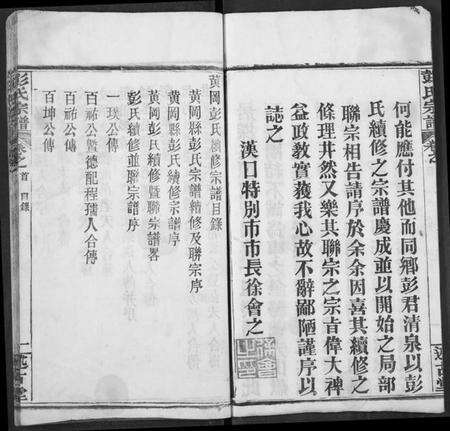 彭氏宗譜
卷之
何能應付其他而同鄉彭君清泉以彭
氏續修之宗譜慶成並以開始之局部
聯宗相告請序於余余因喜其續修之
條理井然又樂其聯宗之宗旨偉大裨
益政教實獲我心故不辭鄙陋謹序以
誌之
漢口特別市市長徐會之
述古堂
彭氏宗譜
卷之首 目錄
黃岡彭氏續修宗譜目錄
黃岡縣彭氏宗譜續修及聯宗序
黃岡縣彭氏續修宗譜序
黃岡彭氏續修暨聯宗譜畧
彭氏續修並聯宗譜序
一璞公傳
百祘公暨德配程孺人合傳
百祘公傳
百坤公傳
一 述古堂